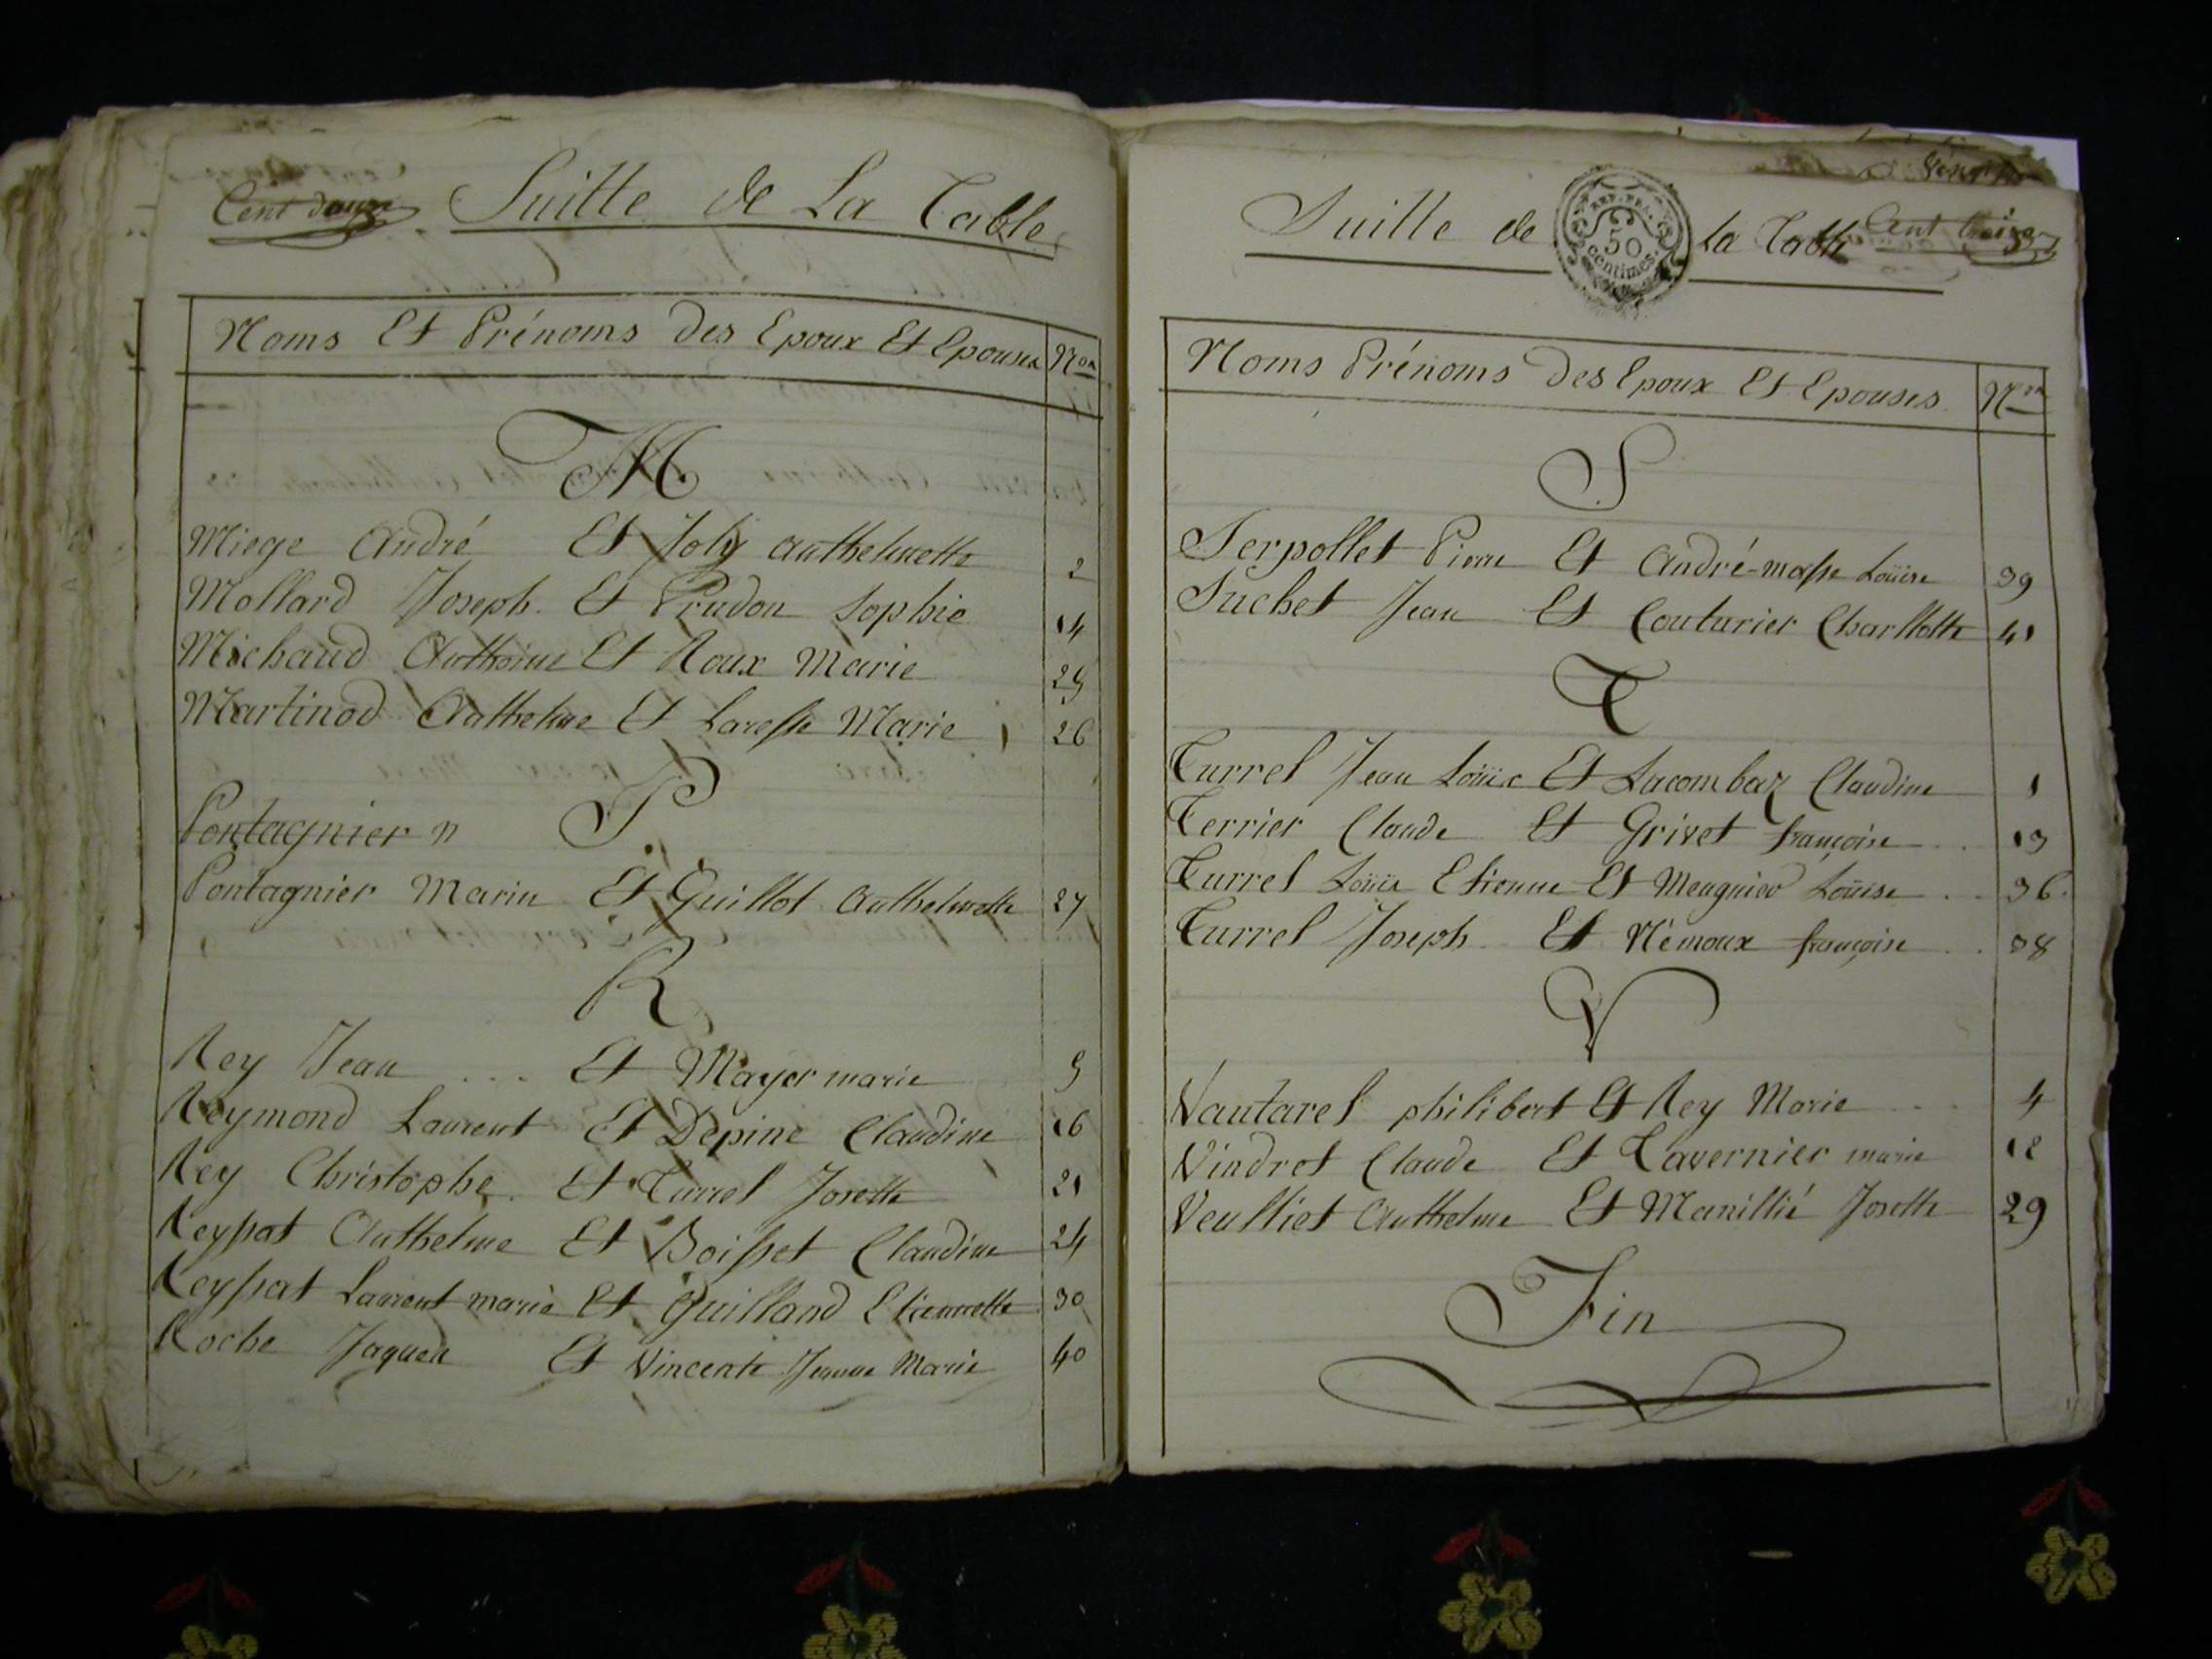 Cent douze Suitte de La Table
Noms Et Prénoms Des Epoux Et Epouses Nos
M
Miege André Et Joly Anthelmette 2
Mollard Joseph Et Prudon Sophie 14
Michaud Anthoine Et Roux Marie 25
Martinod Anthelme Et Laresse Marie 26
P
Pontagnier n
Pontagnier Marin Et Guillot Anthelmette 27
R
Rey Jean Et Mayer marie 5
Reymond Laurent Et Depine Claudine 16
Rey Christophe Et Turrel Josette 21
Reyssat Anthelme Et Boisset Claudine 24
Reyssat Laurent marie Et Guilland Etiennette 30
Roche Jaques Et Vincente Jeanne Marie 40
Suitte de la Table Cent treize
REP. FRA.
50
centimes.
Noms Prénoms Des Epoux Et Epouses Nos
S
Serpollet Pierre Et André-masse Loüise 39
Suchet Jean Et Couturier Charllotte 41
T
Turrel Jean Loüis Et Lacombaz Claudine 1
Terrier Claude Et Grivet françoise 13
Turrel Loüis Etienne Et Meugnier Loüise 36
Turrel Joseph Et Némoux françoise 38
V
Vautarel philibert Et Rey Marie 4
Vindret Claude Et Tavernier marie 12
Veulliet Anthelme Et Manillié Josette 29
Fin